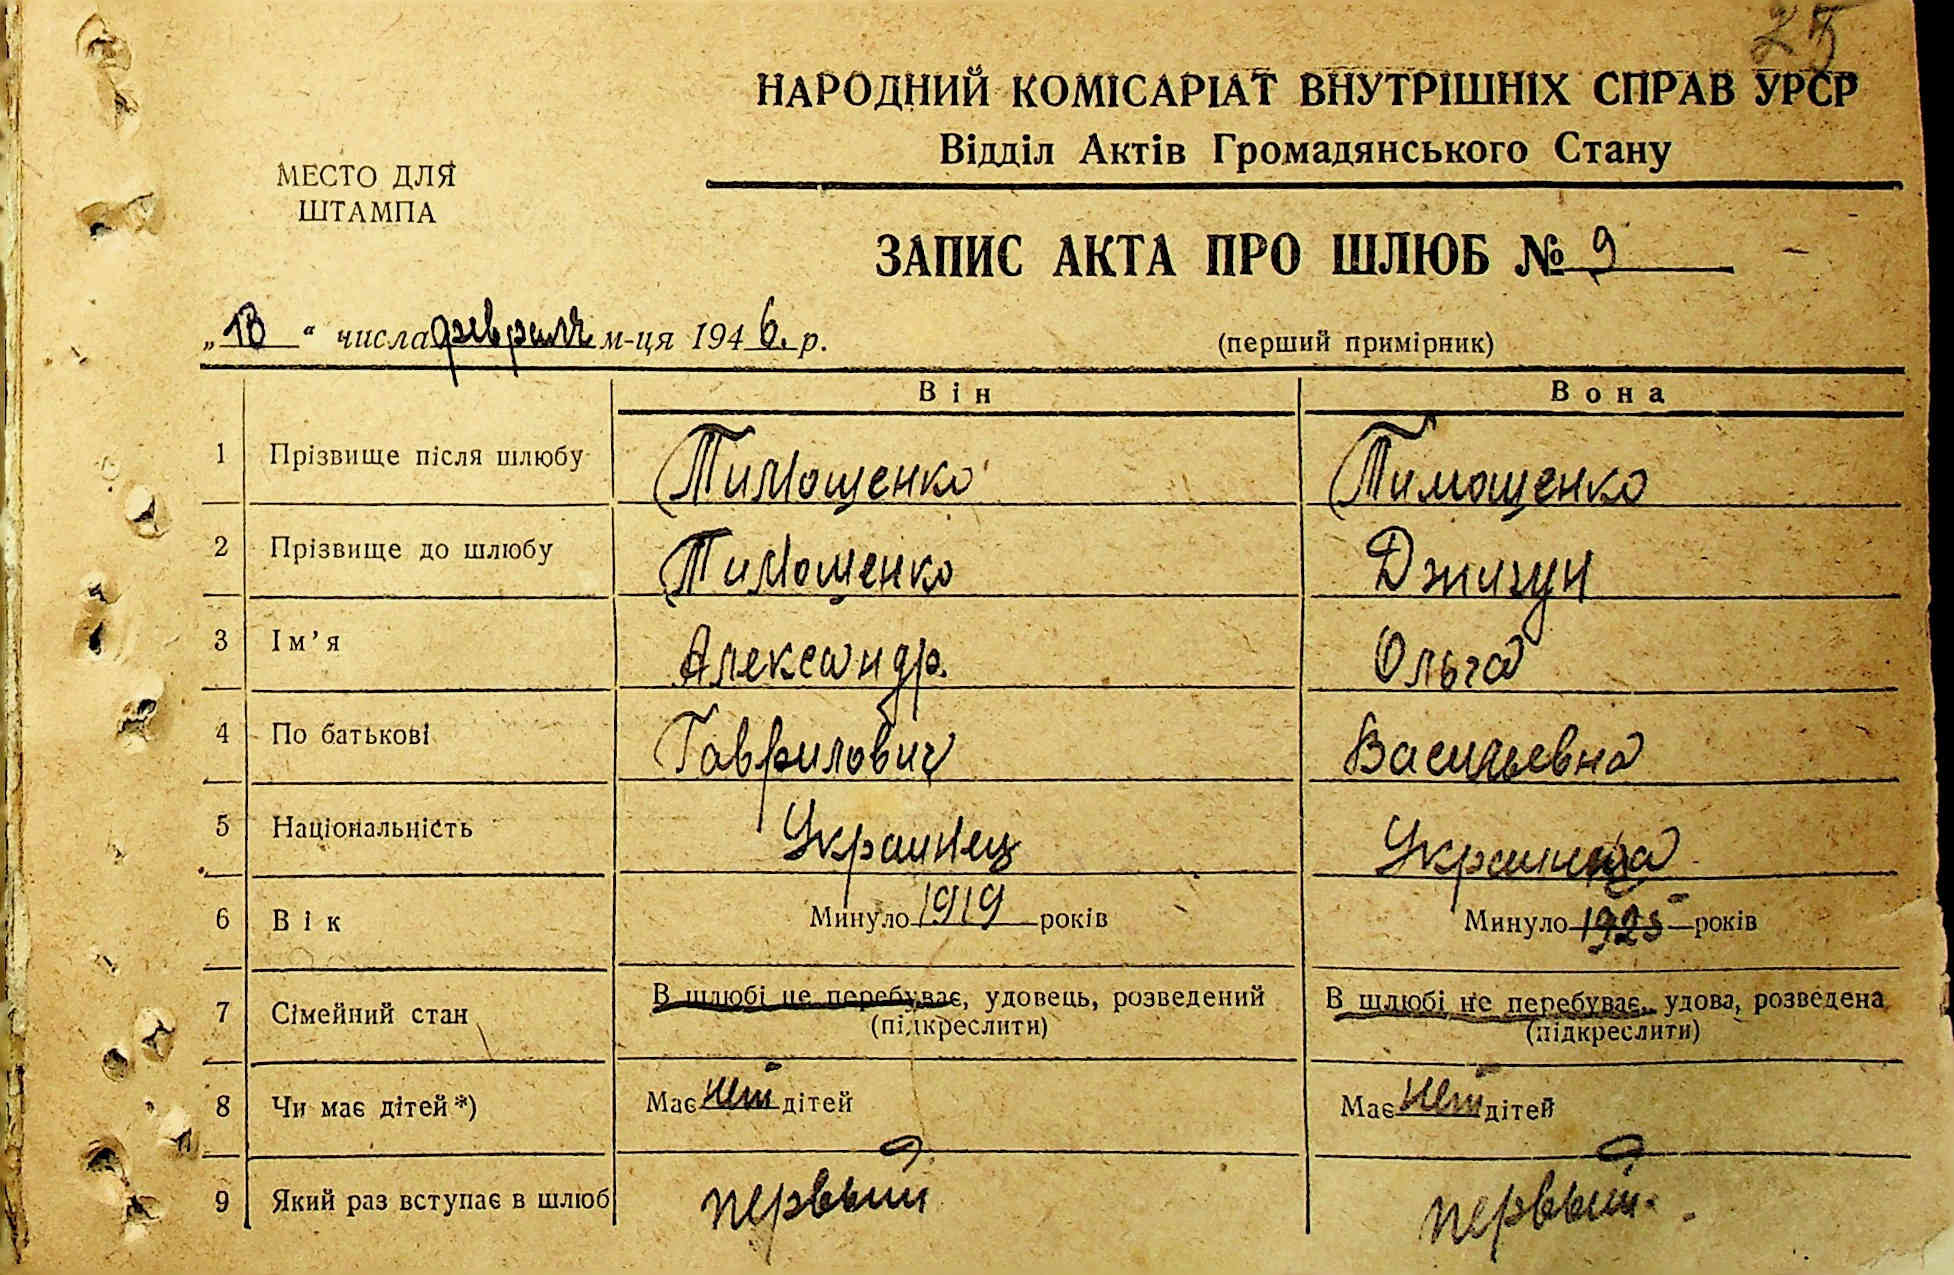 25
НАРОДНИЙ КОМІСАРІАТ ВНУТРІШНІХ СПРАВ УРСР
Відділ Актів Громадянського Стану
МЕСТО ДЛЯ
ШТАМПА
ЗАПИС АКТА ПРО ШЛЮБ № 9
„13“ числа февраля м-ця 1946. р.
(перший примірник)
Він Вона
1 Прізвище після шлюбу Тимощенко Тимощенко
2 Прізвище до шлюбу Тимощенко Джигун
3 Ім’я Александр. Ольга
4 По батькові Гаврилович Васильевна
5 Національність Украинец Украинка
6 Вік Минуло 1919 років Минуло 1925 років
7 Сімейний стан В шлюбі не перебуває, удовець, розведений В шлюбі не перебуває, удова, розведена
(підкреслити) (підкреслити)
8 Чи має дітей*) Має нет дітей Має нет дітей
9 Який раз вступає в шлюб первый первый.